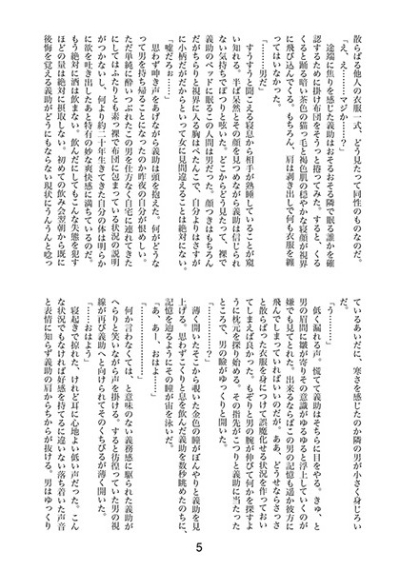 散らばる他人の衣服一式、どう見たって同性のものなのだ。
「え、え……マジか……？」
　途端に焦りを感じた義助はおそるおそる隣で眠る誰かを確
認するために掛け布団をそうっと捲ってみた。すると、くる
くると踊る暗い茶色の猫っ毛と褐色肌の穏やかな寝顔が視界
に飛び込んでくる。もちろん、肩は剥き出しで何も衣服を纏
ってはいなかった。
「……男だ」
　すうすうと聞こえる寝息から相手が熟睡していることが窺
い知れる。半ば呆然とその顔を見つめながら義助は信じられ
ない気持ちでぽつりと呟いた。どこからどう見たって、裸で
義助のベッドに眠るこの人間は男だった。顔つきはもちろん
だがちらりと視界に入る胸はぺたんこで、自分よりはさすが
に小柄だがだからといって女に見間違えることは絶対にない。
「嘘だろぉ……」
　思わず呻き声をあげながら義助は頭を抱えた。何がどうな
って男を持ち帰ることになったのか昨夜の自分が恨めしい。
ただ単純に酔いつぶれたこの男を仕方なく自宅に連れてきた
にしてはふたりとも素っ裸で布団に包まっている状況の説明
がつかないし、何より約二十年生きてきた自分の体は明らか
に欲を吐き出したあと特有の妙な爽快感に満ちているのだ。
もう絶対に酒は飲まない。飲んだにしてもこんな失態を犯す
ほどの量は絶対に摂取しない。初めての飲み会翌朝から既に
後悔を覚える義助がどうにもならない現状にうんうんと唸っ
ているあいだに、寒さを感じたのか隣の男が小さく身じろい
だ。
「う……」
　低く漏れる声。慌てて義助はそちらに目をやる。きゅ、と
男の眉間に皺が寄りその意識がゆるゆると浮上していくのが
嫌でも見てとれた。出来るならばこの男の記憶も遥か彼方に
飛んでしまっていればいいのだが。ああ、どうせならさっさ
と散らばった衣服を身につけて誤魔化せる状況を作っておい
てしまえば良かった。もぞりと男の腕が伸びて何かを探すよ
うに枕元を探り始める。その指先がこつりと義助に当たった
ところで、男の瞼がゆっくりと開いた。
「…………」
　薄く開いたそこから覗いた金色の瞳がぼんやりと義助を見
上げる。思わずごくりと息を飲んだ義助を数秒眺めたのちに、
記憶を辿るようにその瞳が宙を泳いだ。
「あ、あー、おはよ……」
「…………」
　何か言わなくては、と意味のない義務感に駆られた義助が
へらりと笑いながら声を掛ける。すると彷徨っていた男の視
線が再び義助へと向けられてそのくちびるが薄く開いた。
「……おはよう」
　寝起きで掠れた、けれど耳に心地よい低い声だった。こん
な状況でもなければ好感を持てるに違いない落ち着いた声音
と表情に知らず義助の肩からちからが抜ける。男はゆっくり
5